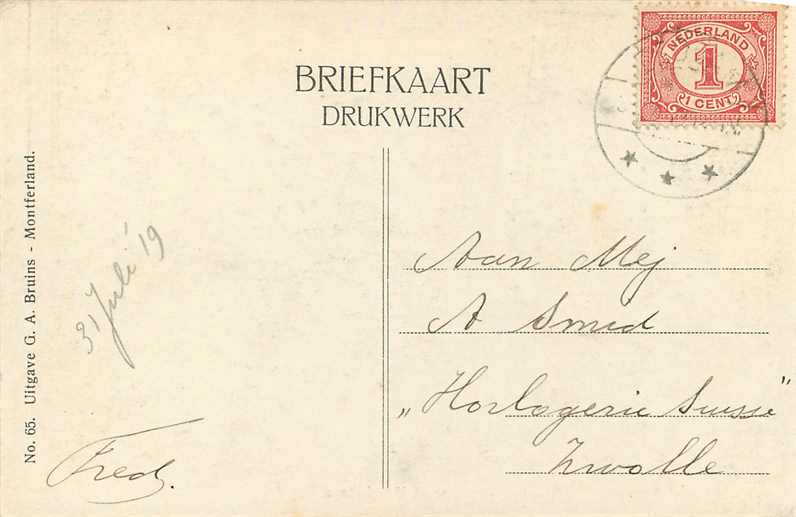 BRIEFKAART
DRUKWERK
NEDERLAND
1
1 CENT
No. 65. Uitgave G. A. Bruins - Montferland.
31 Juli '19
Fred.
Aan Mej
A Smid
„Horlogerie Suisse"
Zwolle